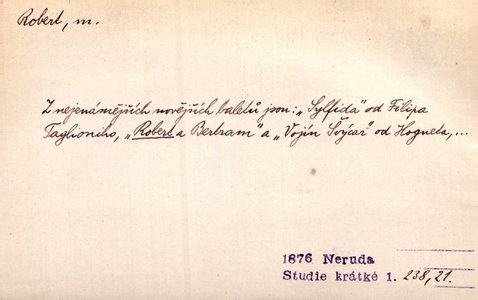 Robert, m.
Z nejznámějších novějších baletů jsou: „Sylfida“ od Filipa
Taglioniho, „Robert a Bertram“ a „Vojín Švýcař“ od Hogueta, ...
1876 Neruda
Studie krátké 1. 238,21.